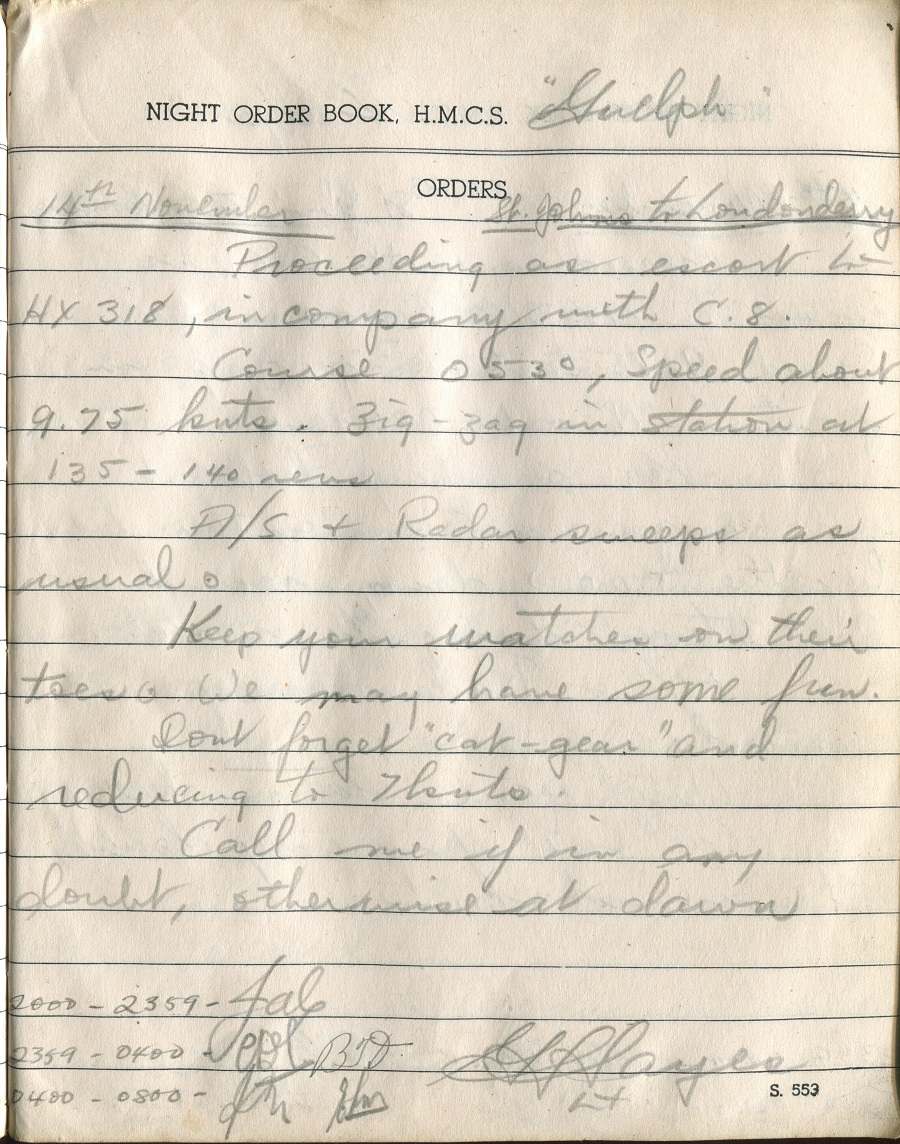 NIGHT ORDER BOOK, H.M.C.S. "Guelph"
ORDERS
14th November St. Johns to Londonderry
Proceeding as escort to
HX 318, in company with C.8.
Course 053°, Speed about
9.75 knts. Zig-zag in station at
135 - 140 revs
A/S + Radar sweeps as
usual.
Keep your watches on their
toes. We may have some fun.
Dont forget "cat-gear" and
reducing to 7 knts.
Call me if in any
doubt, otherwise at dawn
2000 - 2359 -
2359 - 0400 - BTD
0400 - 0800 -
Hayes
Lt
S. 553